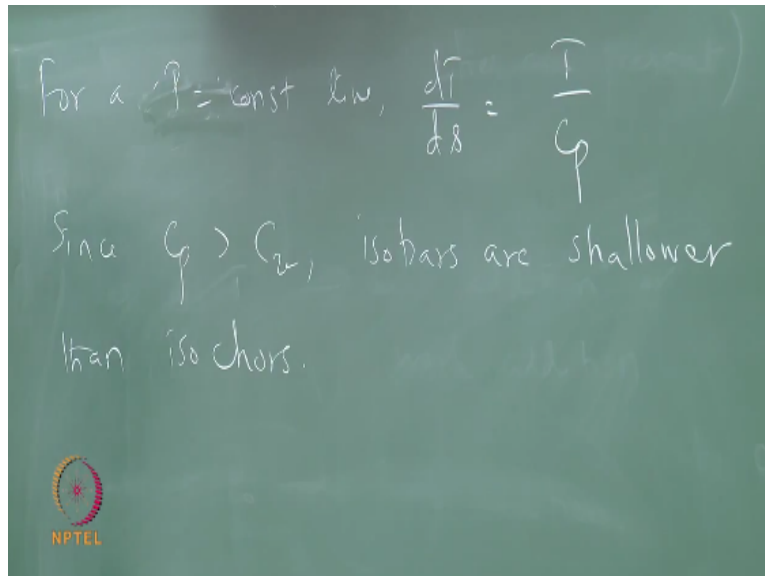 For a P = const line, dT/ds = T/Cp
Since Cp > Cv, isobars are shallower
than isochors.
NPTEL